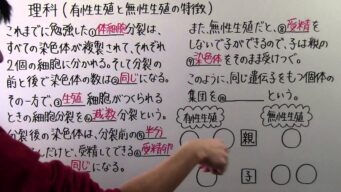 理科(有性生殖と無性生殖の特徴)
これまでに勉強した①体細胞分裂は、
すべての染色体が複製されて、それぞれ
2個の細胞に分かれる。そして分裂の
前と後で染色体の数は②同じになる。
その一方で、③生殖細胞がつくられる
ときの細胞分裂を④減数分裂という。
分裂後の染色体は、分裂前の⑤半分
んだけど、受精してできる⑥受精卵
同じになる。
また、無性生殖だと、⑧受精を
しないで子ができるので、子は親の
⑨染色体をそのまま受けつぐ。
このように、同じ遺伝子をもつ個体の
集団を⑩という。
有性生殖
無性生殖
親
子